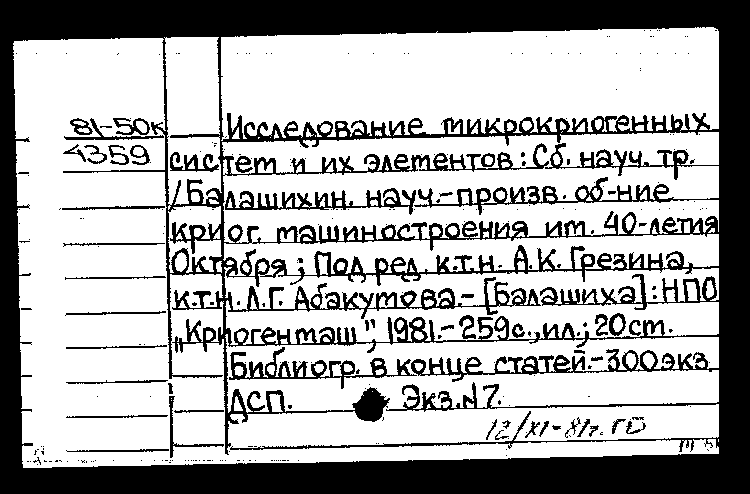 81-50к
4359
Исследование микрокриогенных
систем и их элементов: Сб. науч. тр.
/Балашихин. науч.-произв. об-ние
криог. машиностроения им. 40-летия
Октября; Под ред. к.т.н. А.К. Грезина,
к.т.н. Л.Г. Абакумова.- [Балашиха]: НПО
„Криогенмаш”, 1981.- 259с., ил.; 20см.
Библиогр. в конце статей.-300экз.
ДСП. Экз.№7.
12/XI-81г.